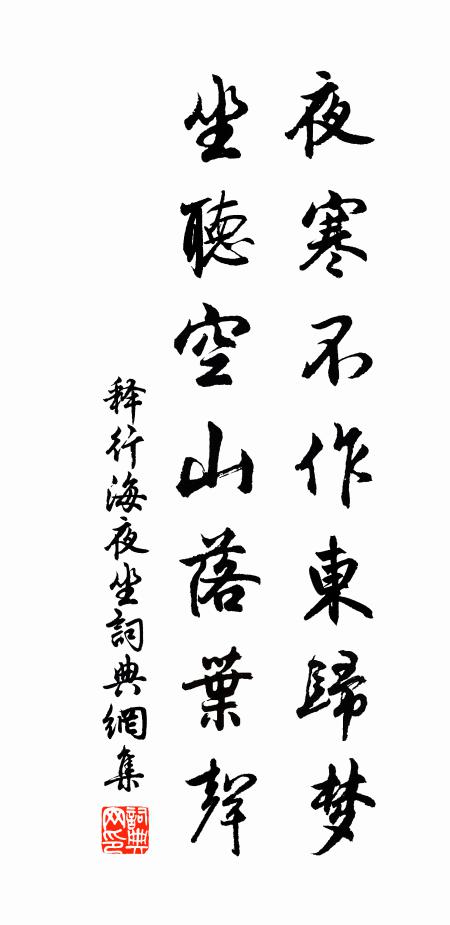 夜寒不作東歸梦
坐聽空山落葉聲
释行海夜坐詞典網集
詞典网印